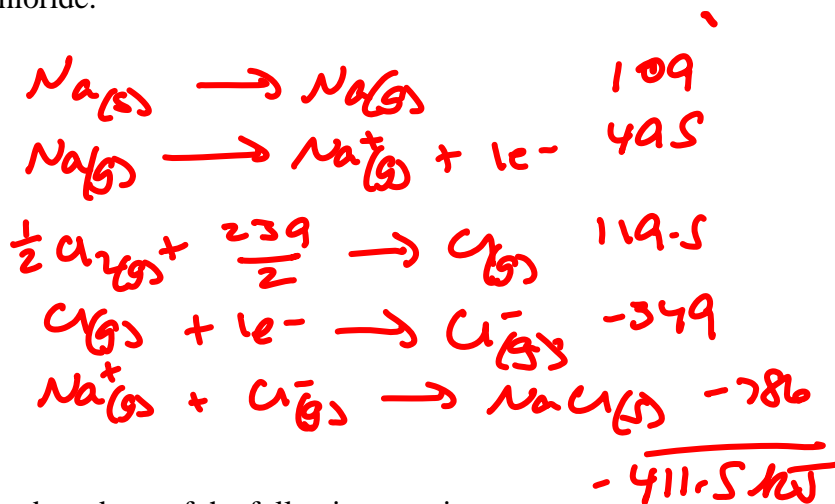 chloride.
Na(s) → Na(g) 109
Na(g) → Na⁺(g) + 1e- 495
½ Cl₂(g) + 239/2 → Cl(g) 119.5
Cl(g) + 1e- → Cl⁻(g) -349
Na⁺(g) + Cl⁻(g) → NaCl(s) -786
-411.5 kJ